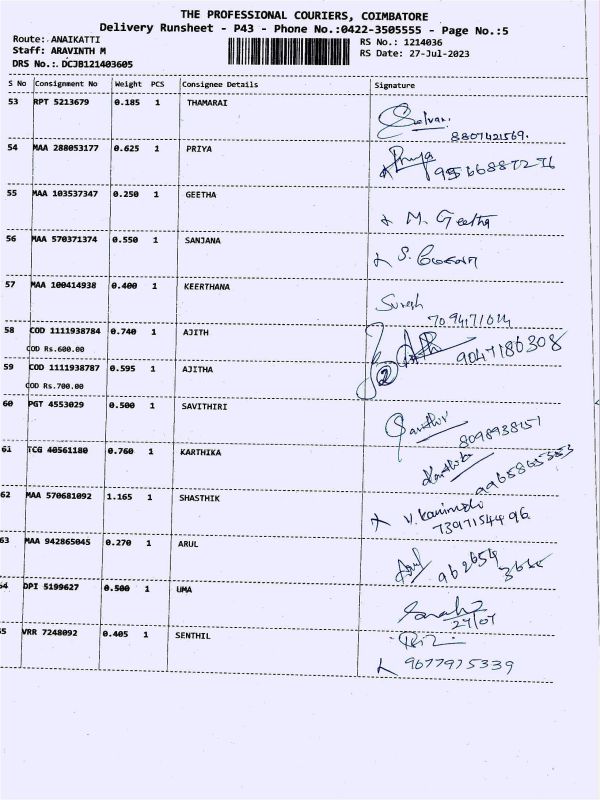 THE PROFESSIONAL COURIERS, COIMBATORE
Delivery Runsheet - P43 - Phone No.:0422-3505555 - Page No.:5
Route: ANAIKATTI
RS No.: 1214036
Staff: ARAVINTH M
RS Date: 27-Jul-2023
DRS No.: DCJB121403605
S No Consignment No Weight PCS Consignee Details Signature
53 RPT 5213679 0.185 1 THAMARAI
Selvan.
8807421569.
54 MAA 288053177 0.625 1 PRIYA
Priya
55 MAA 103537347 0.250 1 GEETHA
M. Geetha
56 MAA 570371374 0.550 1 SANJANA
S.
57 MAA 100414938 0.400 1 KEERTHANA
Suresh
58 COD 1111938784 0.740 1 AJITH
COD Rs.600.00
9047186308
59 COD 1111938787 0.595 1 AJITHA
COD Rs.700.00
2
60 PGT 4553029 0.500 1 SAVITHIRI
8098938151
61 TCG 40561180 0.760 1 KARTHIKA
Karthika
62 MAA 570681092 1.165 1 SHASTHIK
7397154496
63 MAA 942865045 0.270 1 ARUL
Arul 962654
64 DPI 5199627 0.500 1 UMA
27/07
VRR 7248092 0.405 1 SENTHIL
9677975339